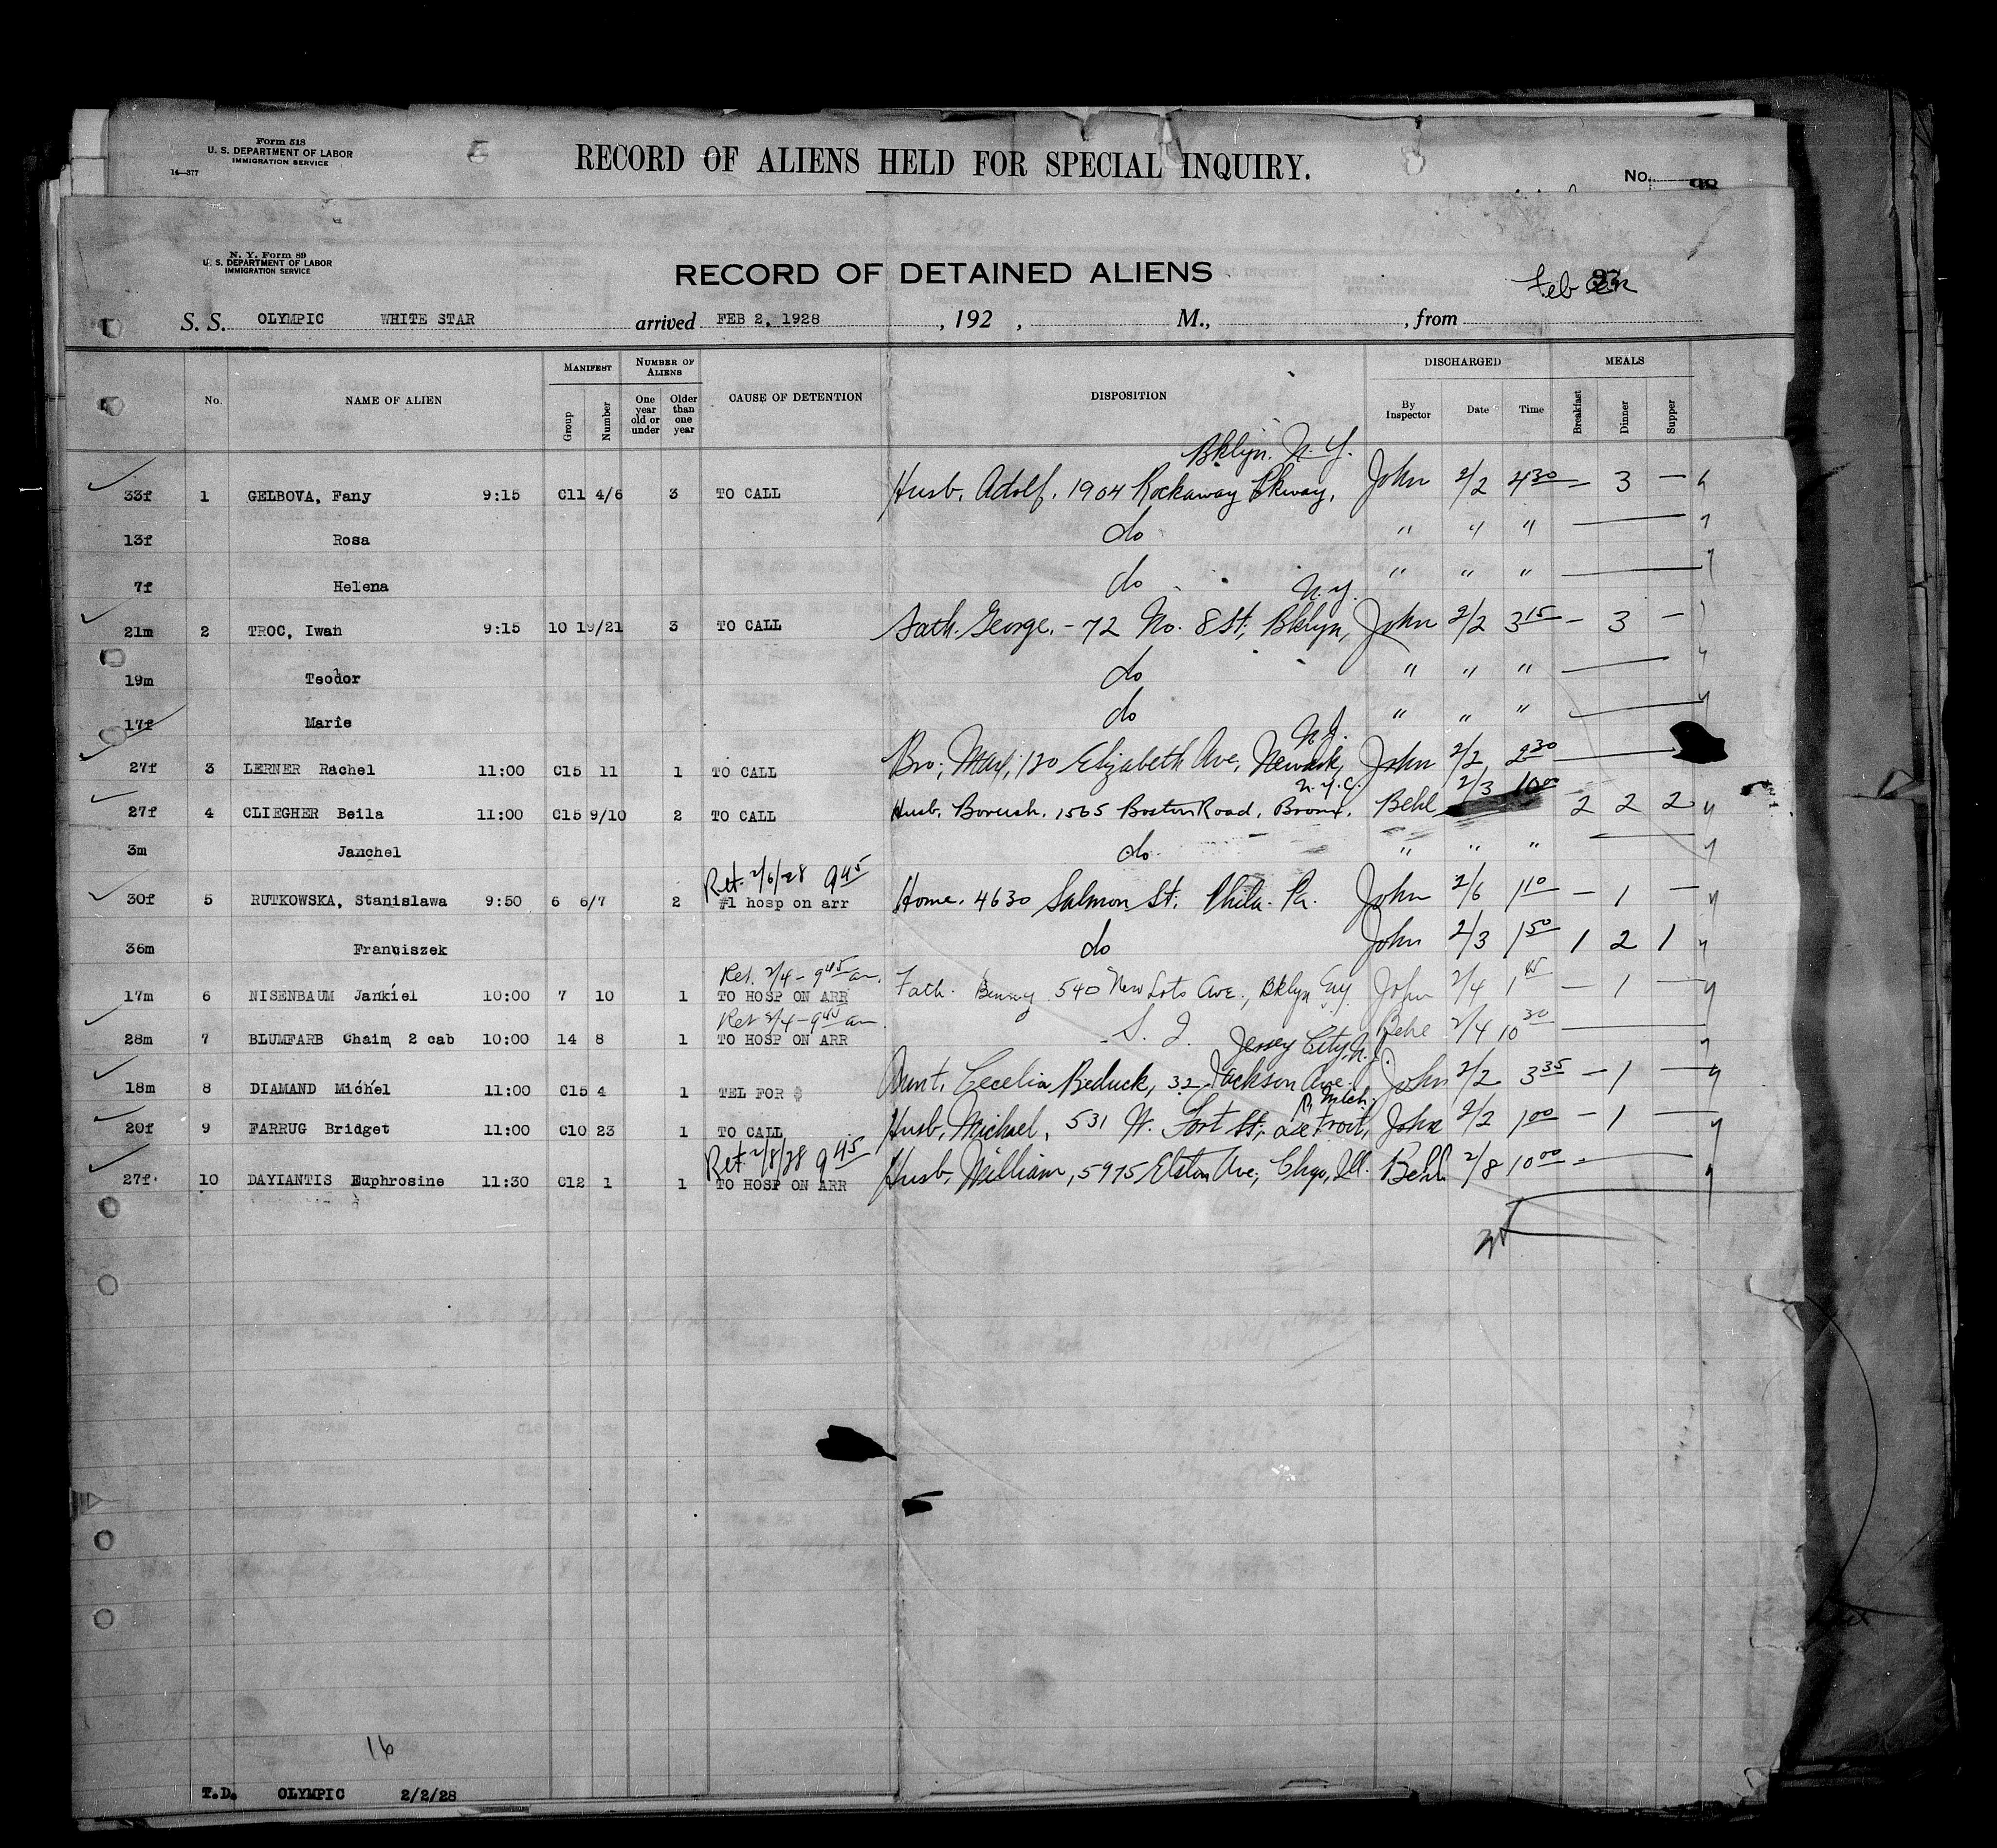 Form 518
U. S. DEPARTMENT OF LABOR
IMMIGRATION SERVICE
14—377
RECORD OF ALIENS HELD FOR SPECIAL INQUIRY.
No.
N. Y. Form 89
U. S. DEPARTMENT OF LABOR
IMMIGRATION SERVICE
RECORD OF DETAINED ALIENS
Feb
S. S. OLYMPIC WHITE STAR arrived FEB 2, 1928 , 192 , M., , from
No. NAME OF ALIEN MANIFEST Group Number NUMBER OF ALIENS One year old or under Older than one year CAUSE OF DETENTION DISPOSITION DISCHARGED By Inspector Date Time MEALS Breakfast Dinner Supper
Bklyn. N. Y.
33f 1 GELBOVA, Fany 9:15 C11 4/6 3 TO CALL Husb. Adolf. 1904 Rockaway Pkway, John 2/2 4 30 — 3 —
13f Rosa do " " "
7f Helena do " " "
N.Y.
21m 2 TROC, Iwan 9:15 10 19/21 3 TO CALL Fath. George. - 72 No. 8 St, Bklyn, John 2/2 3 15 — 3 —
19m Teodor do " " "
17f Marie do " " "
N.J.
27f 3 LERNER Rachel 11:00 C15 11 1 TO CALL Bro; Max, 120 Elizabeth Ave, Newark, John 2/2 2 30
N.Y.C. 2/3 10 00
27f 4 CLIEGHER Beila 11:00 C15 9/10 2 TO CALL Husb. Boruch. 1565 Boston Road, Bronx. Behl 2 2 2
3m Janchel do. " " "
Ret. 2/6/28 9 45
30f 5 RUTKOWSKA, Stanislawa 9:50 6 6/7 2 #1 hosp on arr Home. 4630 Salmon St. Phila. Pa. John 2/6 1 10 — 1 —
36m Franciszek do John 2/3 1 50 1 2 1
Ret. 2/4 - 9 45 am.
17m 6 NISENBAUM Jankiel 10:00 7 10 1 TO HOSP ON ARR Fath. 540 New Lots Ave., Bklyn John 2/4 — 1 —
Ret 2/4 - 9 45 am.
28m 7 BLUMFARB Chaim 2 cab 10:00 14 8 1 TO HOSP ON ARR S. I. Behl 2/4 10 30
Jersey City, N.J.
18m 8 DIAMAND Michel 11:00 C15 4 1 TEL FOR $ Aunt. Cecelia Beduck, 32 Jackson Ave. John 2/2 3 35 — 1 —
Mich.
20f 9 FARRUG Bridget 11:00 C10 23 1 TO CALL Husb. Michael, 531 W. Fort St., Detroit, John 2/2 1 00 — 1 —
Ret. 2/8/28 9 45
27f 10 DAYIANTIS Euphrosine 11:30 C12 1 1 TO HOSP ON ARR Husb. William, 5975 Elston Ave; Chgo, Ill. Behl 2/8 10 00
16
T.D. OLYMPIC 2/2/28